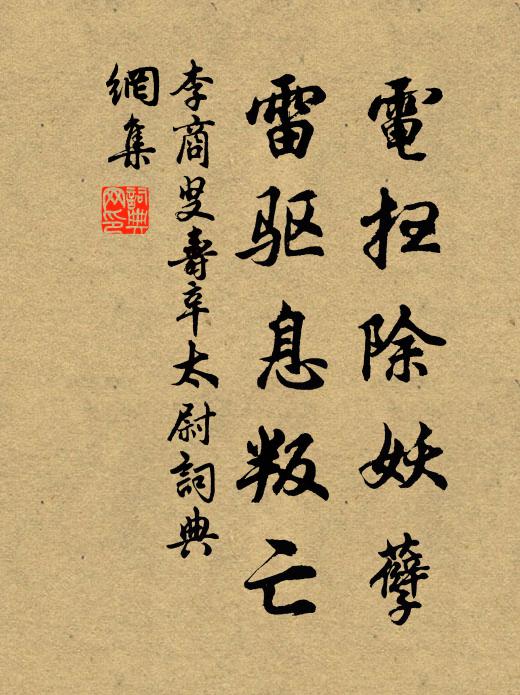 電扫除妖孽
雷驱息叛亡
李商叟壽辛太尉詞典
網集
詞典
网印